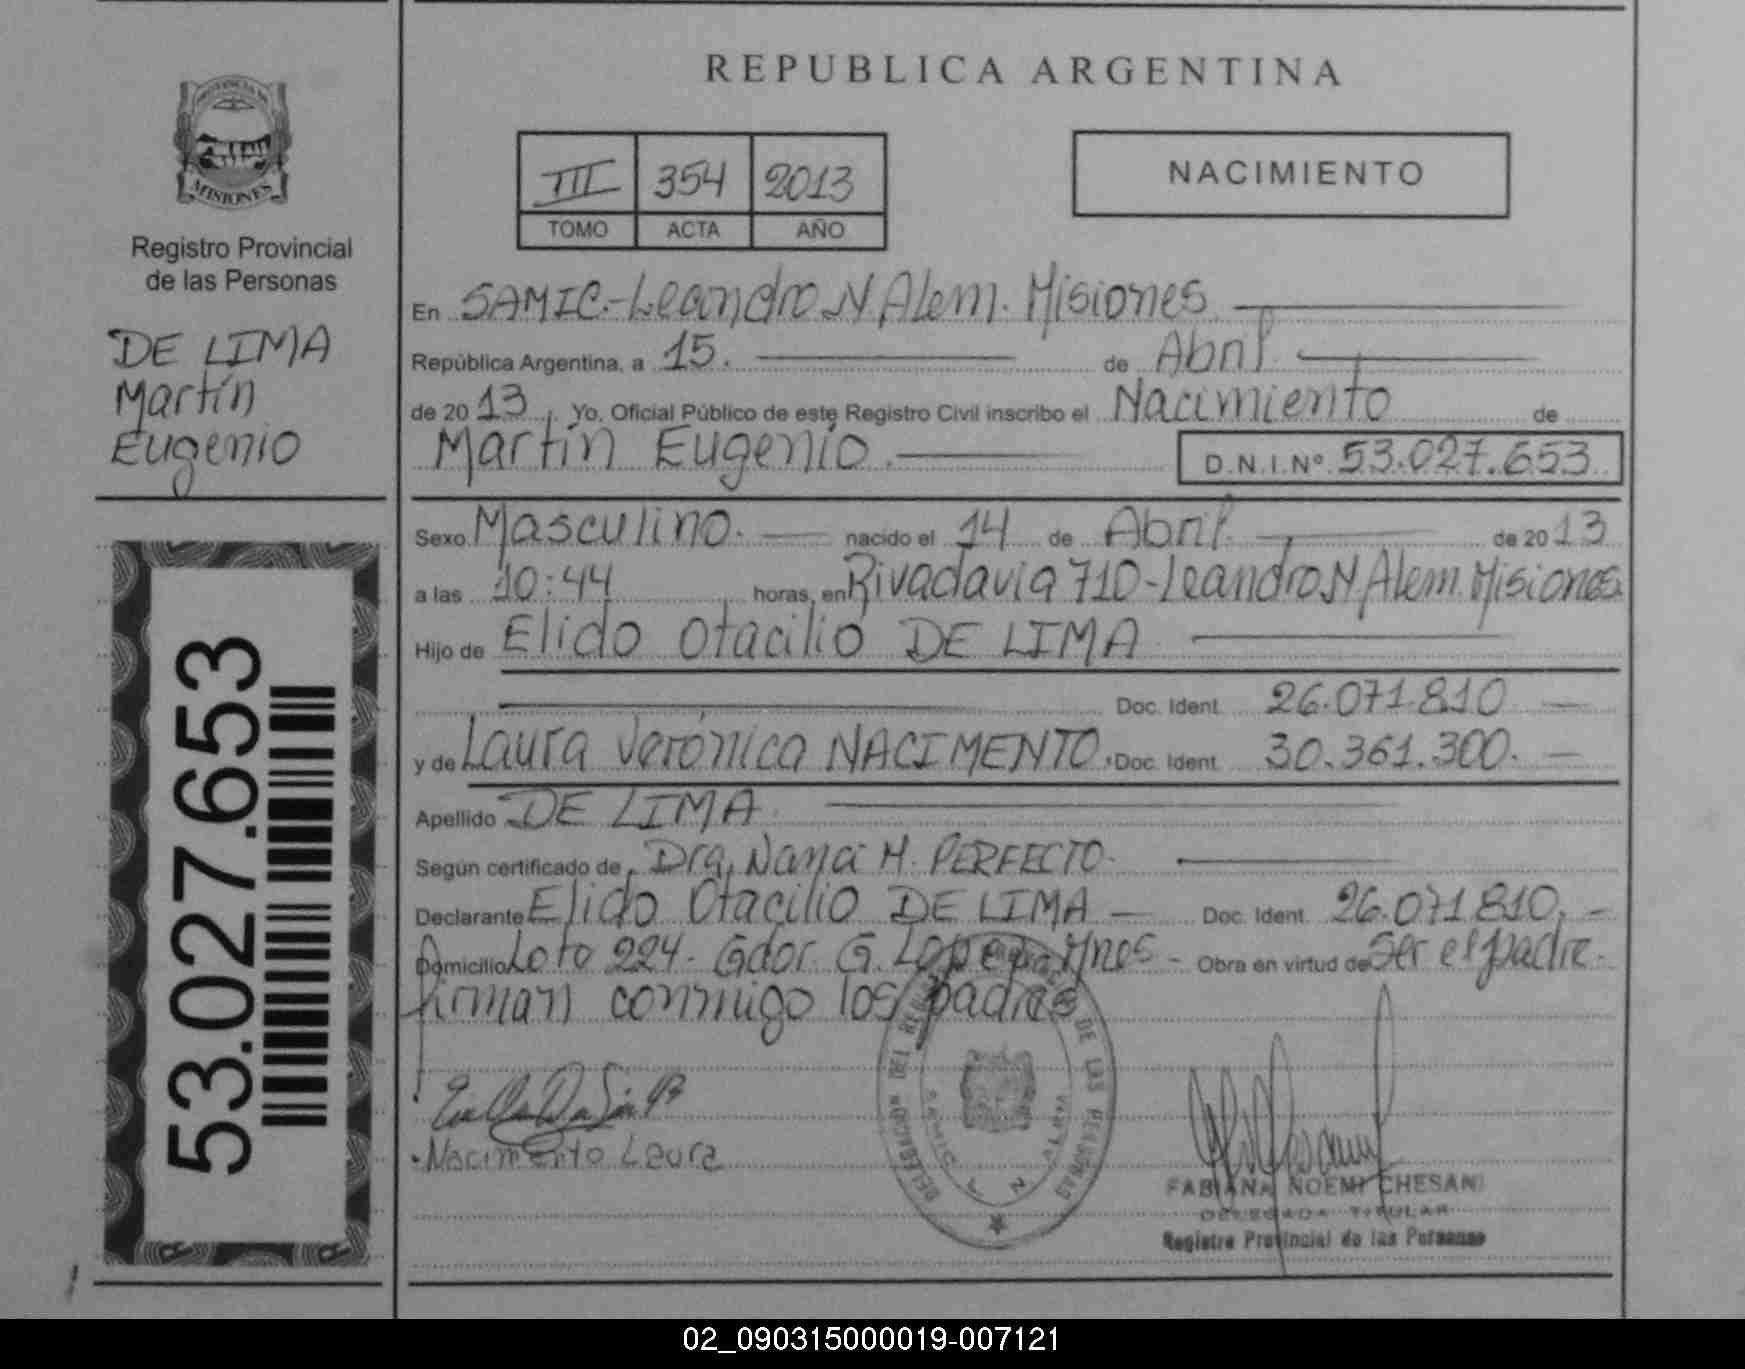 REPUBLICA ARGENTINA
MISIONES
Registro Provincial
de las Personas
DE LIMA
Martín
Eugenio
53.027.653
III 354 2013
TOMO ACTA AÑO
NACIMIENTO
En SAMIC.-Leandro N Alem. Misiones
República Argentina, a 15. de Abril.
de 20 13, Yo, Oficial Público de este Registro Civil inscribo el Nacimiento de
Martín Eugenio. D.N.I.Nº 53.027.653.
Sexo Masculino. nacido el 14 de Abril. de 20 13
a las 10:44 horas, en Rivadavia 710-Leandro N Alem. Misiones.
Hijo de Elido Otacilio DE LIMA
Doc. Ident. 26.071.810
y de Laura Verónica NACIMENTO. Doc. Ident. 30.361.300.
Apellido DE LIMA
Según certificado de Dra. M. PERFECTO.
Declarante Elido Otacilio DE LIMA Doc. Ident. 26.071.810.
Domicilio Loto 224- Gdor. G. Lopez. Mnes- Obra en virtud de Ser el padre.
firman conmigo los padres
Nacimento Laura
DELEGACION DEL REGISTRO DE LAS PERSONAS
FABIANA NOEMI CHESANI
DELEGADA TITULAR
Registro Provincial de las Personas
02_090315000019-007121